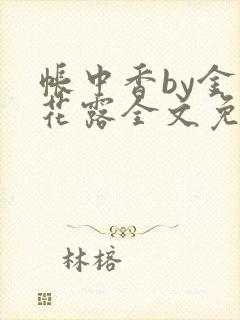 帐中香by金
花露全文免
林榕